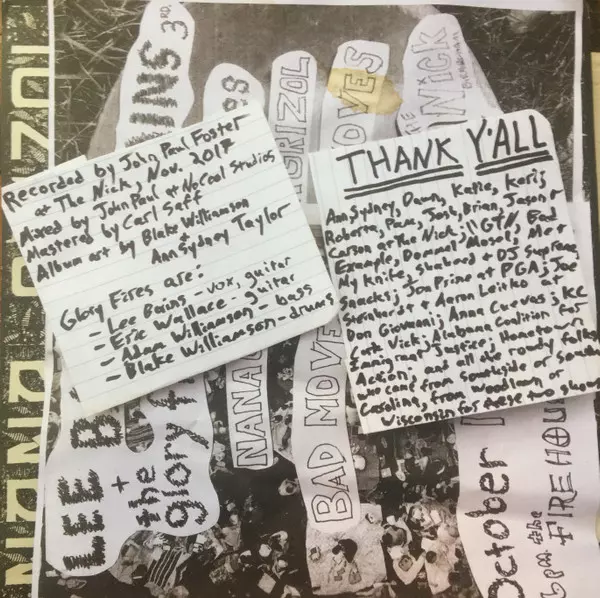 Recorded by John Paul Foster
at The Nick, Nov. 2017
Mixed by John Paul at NoCoal Studios
Mastered by Carl Saff
Album art by Blake Williamson
+ Ann Sydney Taylor
Glory Fires are:
- Lee Bains - vox, guitar
- Eric Wallace - guitar
- Adam Williamson - bass
- Blake Williamson - drums
THANK Y'ALL
Ann Sydney, Dawn, Katie, Kori;
Roberta, Pam, Josh, Brian, Jason +
Carson at The Nick; GTN, Bad
Example, Dommel Mosel, Me +
My Knife, shaheed + DJ Supreme,
Snacks; Jon Prine at PGA; Joe
Steinhardt + Aaron Leitko at
Don Giovanni; Anna Cuevas; KC
Vick; Alabama Coalition for
Immigrant Justice; Hometown
Action; and all the rowdy folks
who came from southside or South
Carolina, from Woodlawn or
Wisconsin for these two shows
INS 3RD
GRIZOL
MOVES
THE NICK
BIRMINGHAM
LEE B
+
the
glory f
NANA
BAD MOVE
October
6pm @ the
FIREHOU
NANA GRIZOL